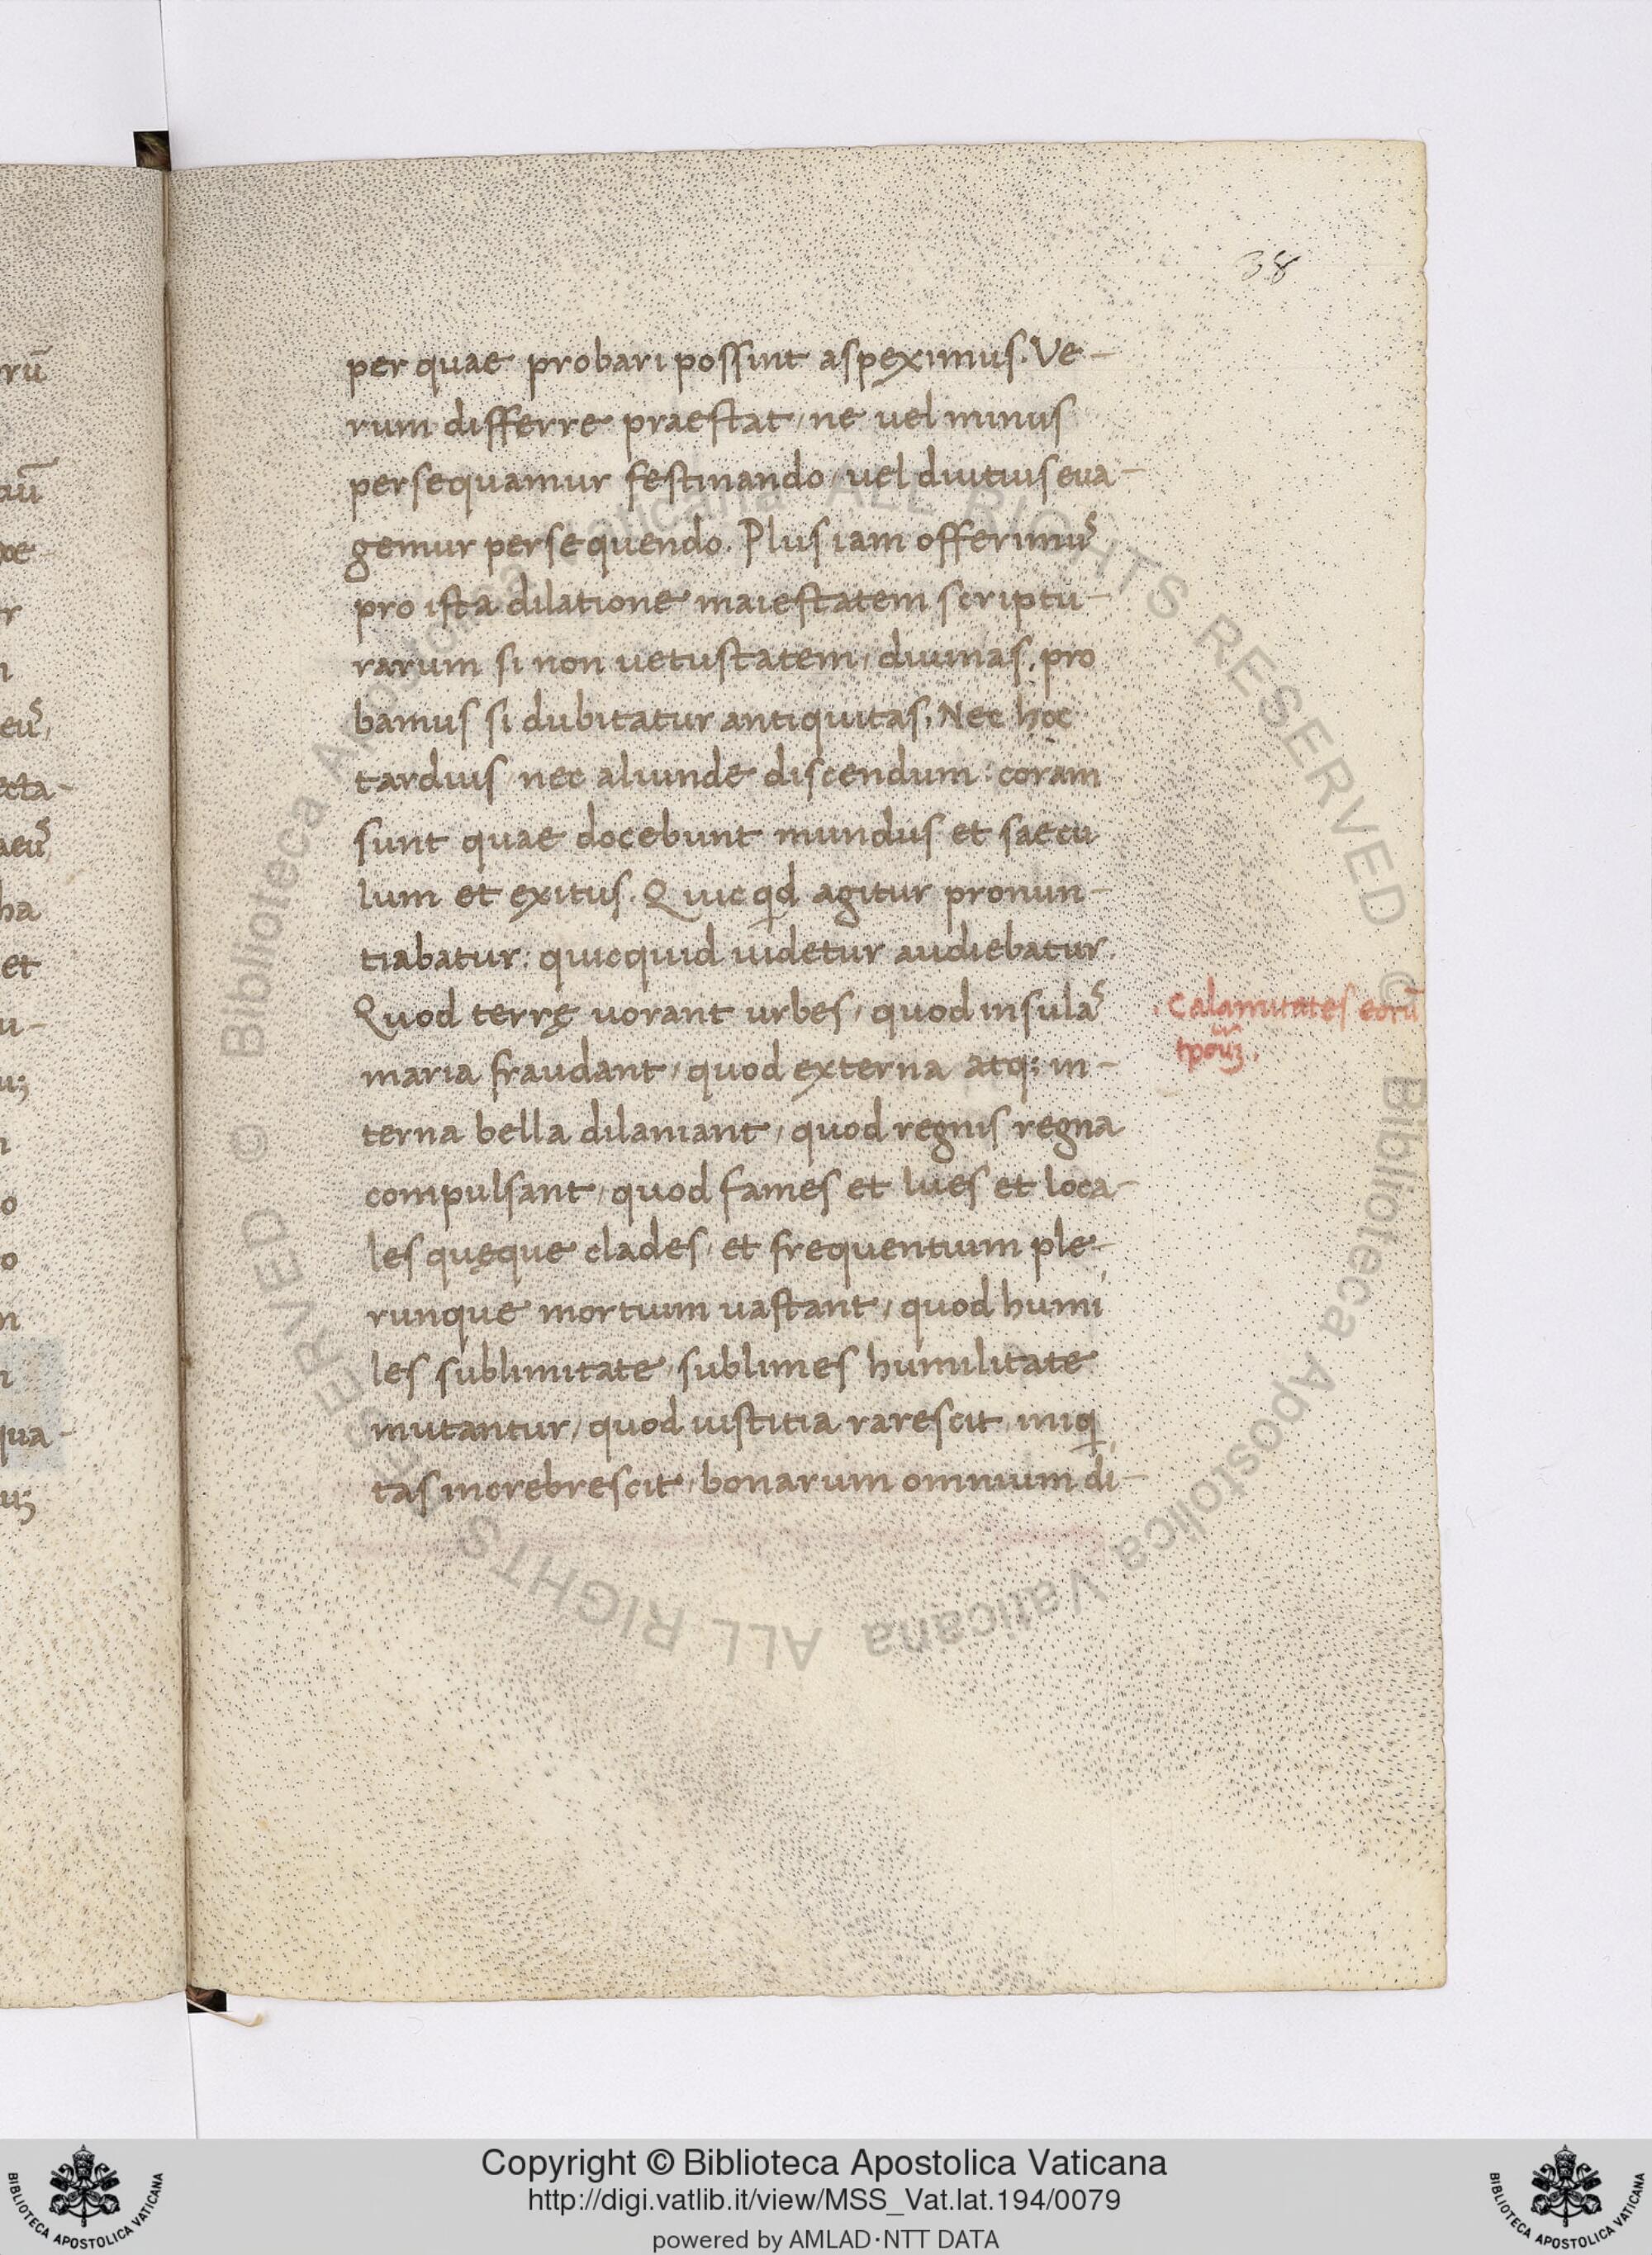 38
per quae probari possint aspeximus. Ve-
rum differre praestat, ne uel minus
persequamur festinando, uel diutius eua-
gemur persequendo. Plus iam offerimus
pro ista dilatione maiestatem scriptu-
rarum si non uetustatem, diuinas, pro
bamus si dubitatur antiquitas. Nec hoc
tardius nec aliunde discendum: coram
sunt quae docebunt mundus et saecu
lum et exitus. Quicqd agitur pronun-
tiabatur: quicquid uidetur audiebatur.
Quod terrę uorant urbes, quod insulas
maria fraudant, quod externa atq; in-
terna bella dilaniant, quod regnis regna
compulsant, quod fames et lues et loca-
les quęque clades, et frequentium ple-
runque mortium uastant, quod humi
les sublimitate, sublimes humilitate
mutantur, quod iustitia rarescit, iniq
tas increbrescit, bonarum omnium di-
Calamitates eorū
rū
aū
r
eus,
ecta-
aeus,
ha
et
u-
u;
o
o
qua-
u;
Biblioteca Apostolica Vaticana ALL RIGHTS RESERVED © Biblioteca Apostolica Vaticana ALL RIGHTS RESERVED ©
Copyright © Biblioteca Apostolica Vaticana
http://digi.vatlib.it/view/MSS_Vat.lat.194/0079
powered by AMLAD·NTT DATA
BIBLIOTECA APOSTOLICA VATICANA
BIBLIOTECA APOSTOLICA VATICANA